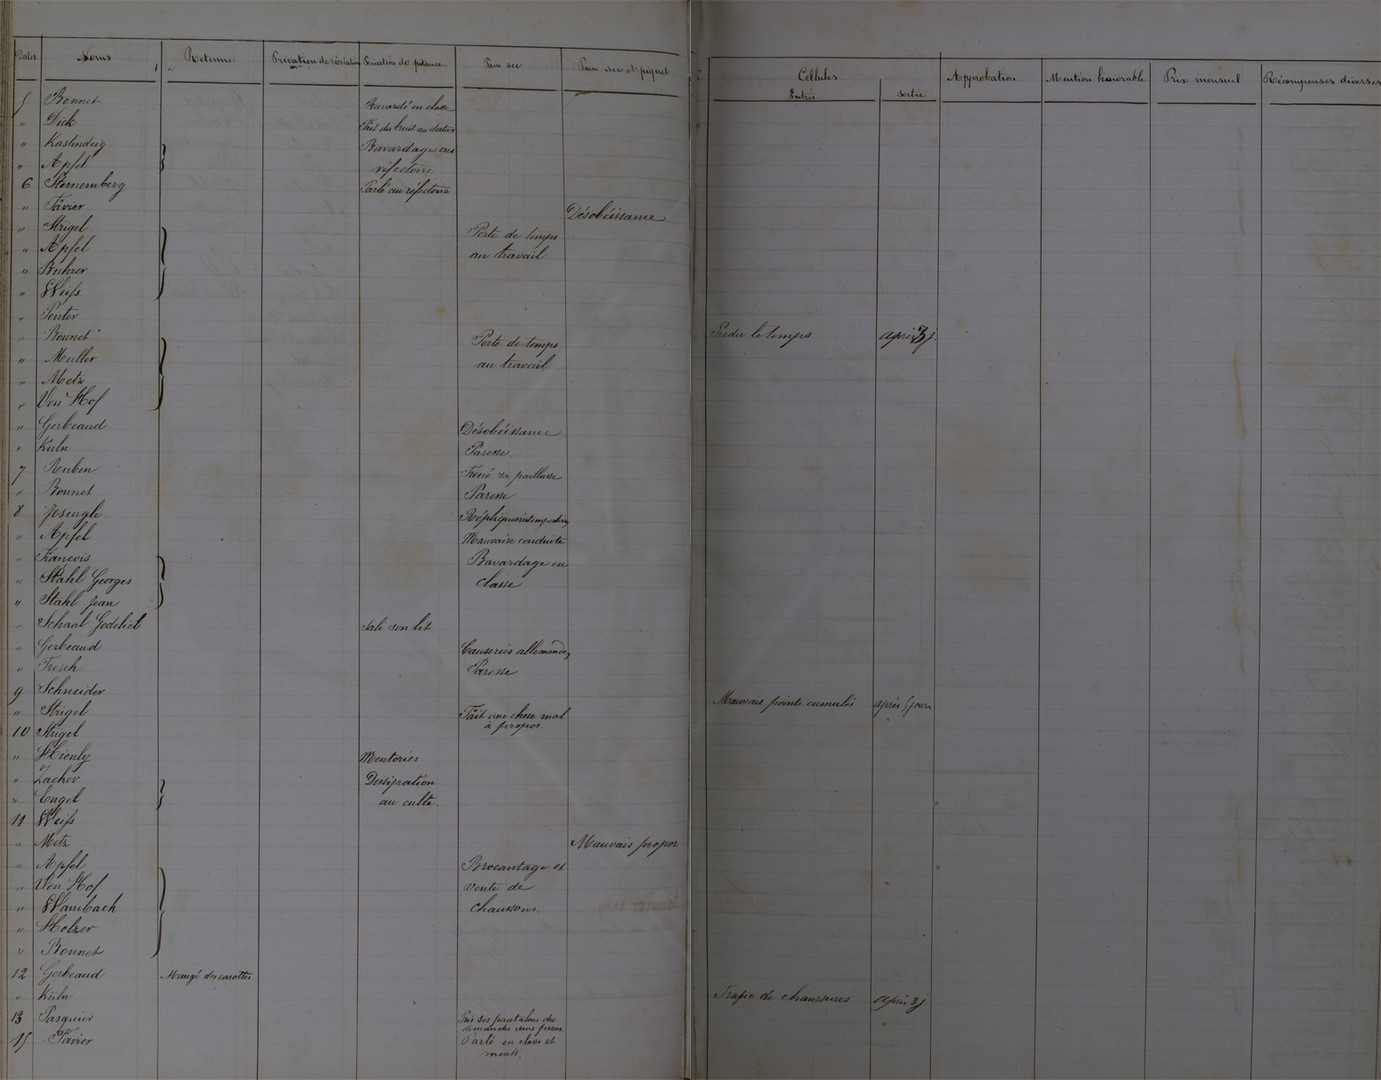 Dates Noms Retenue Privation de récréation Privation de pitance Pain sec Pain sec et piquet Cellules Entrée sortie Approbation Mention honorable Prix mensuel Récompenses diverses
5 Bonnet Bavardé en classe
" Dick Fait du bruit au dortoir
" Kaslindeig Bavardage au
" Apfel réfectoire
6 Sternemberg Parlé au réfectoire
" Favier Désobéissance
" Strigel Perte de temps
" Apfel au travail
" Buhrer
" Weiss
" Penter Perdu le temps après 3 j.
" Bonnet Perte de temps
" Muller au travail
" Metz
" Von Hof
" Gerbeaud Désobéissance
" Kuln Paresse.
7 Reuben Troué sa paillasse
" Bonnet Paresse
8 Josengle
" Apfel Mauvaise conduite
" François Bavardage en
" Stahl Georges classe
" Stahl Jean
" Schaal Godelieb Sali son lit
" Gerbeaud Causeries allemandes
" Fresch Paresse
9 Schneider Mauvais points cumulés après 5 jours
" Strigel Fait une chose mal
à propos.
10 Strigel
" Hienly Menteries
" Zacher Dissipation
" Engel au culte.
11 Weiss
" Metz Mauvais propos
" Apfel Brocantage et
" Von Hof vente de
" Wambach chaussons.
" Holzer
" Bonnet
12 Gerbeaud Mangé des carottes
" Kuln Trafic de chaussures après 3 j
13 Pasquier Pris ses pantalons du
dimanche sans permis
15 Favier Parlé en classe et
menti.